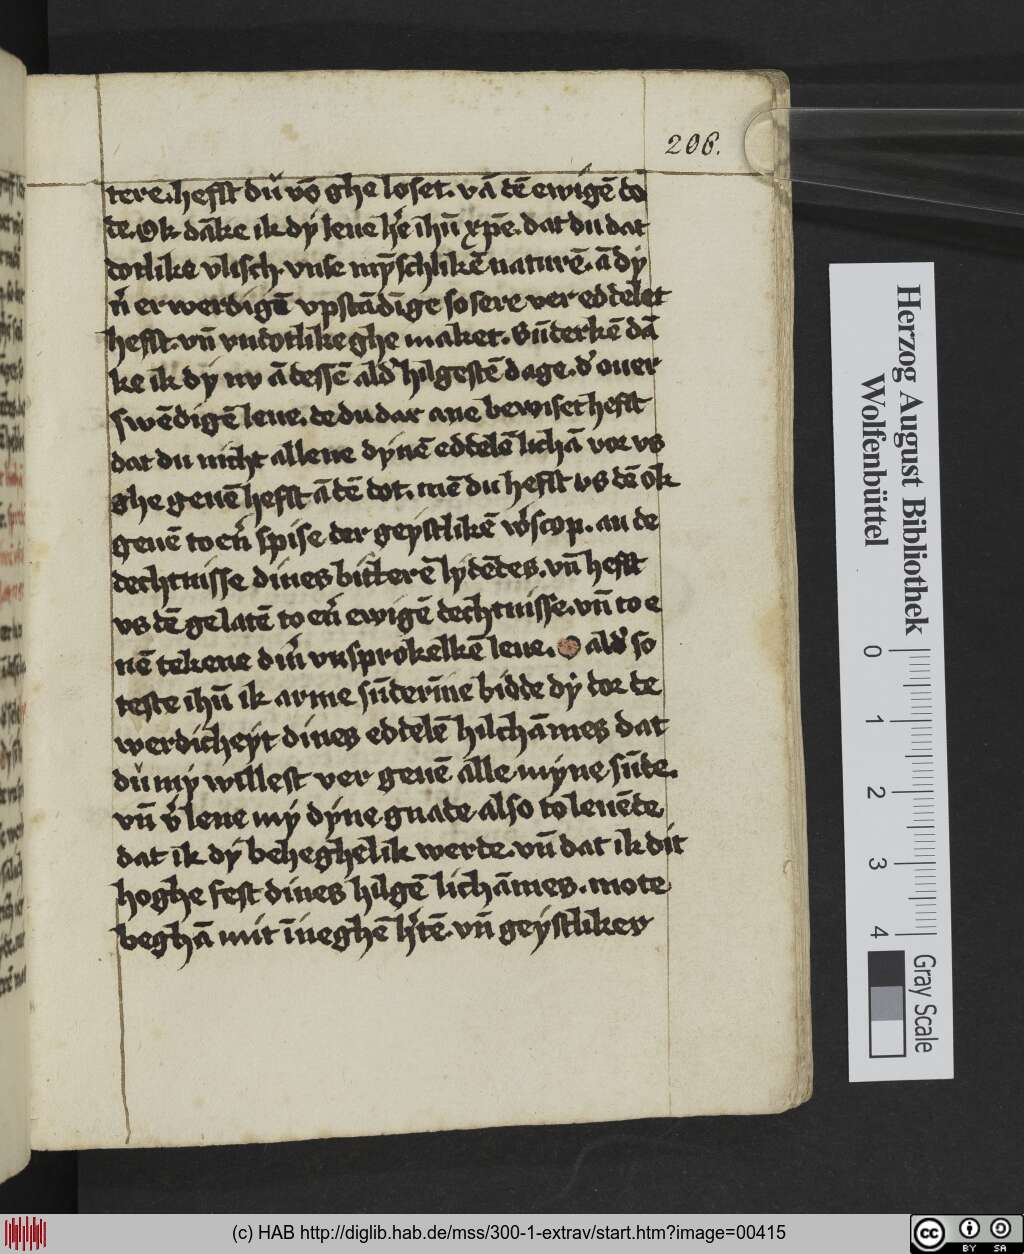 206.
tere. hefst du vō ghe loset. vā dē ewigē do
de. Ok dāke ik dy leue h̄e ih̄u xp̄e. dat du dat
dotlike vlisch. vnse mȳschlikē naturē. ā dy
n̄ er werdigē vpstādīge so sere ver eddelet
hefst. vn̄ vndotlike ghe maket. Sūderkē dā
ke ik dy nv ā dessē ald̓ hilgestē dage. d̓ ouer
swēdigē leue. de du dar ane bewiset hefst
dat du nicht allene dynē eddelē lichā vor vs
ghe geuē hefst ā dē dot. mē du hefst vs dē ok
geuē to eȓ spise der geystlikē w̓scop. an de
dechtnisse dines bitterē lydēdes. vn̄ hefst
vs dē gelatē to eȓ ewigē dechtnisse. vn̄ to e
nē tekene diȓ vnsprokelkē leue. O ald̓ so
teste ih̄u ik arme sūderīne bidde dy dor de
werdicheyt dines eddelē hilchāmes dat
du my willest ver geuē alle myne sūde.
vn̄ v̓lene my dyne gnade also to leuēde
dat ik dy beheghelik werde. vn̄ dat ik dit
hoghe fest dines hilgē lichāmes. mote
beghā mit īneghē h̓tē. vn̄ geystliker
Herzog August Bibliothek
Wolfenbüttel
0 1 2 3 4
Gray Scale
(c) HAB http://diglib.hab.de/mss/300-1-extrav/start.htm?image=00415
cc BY SA